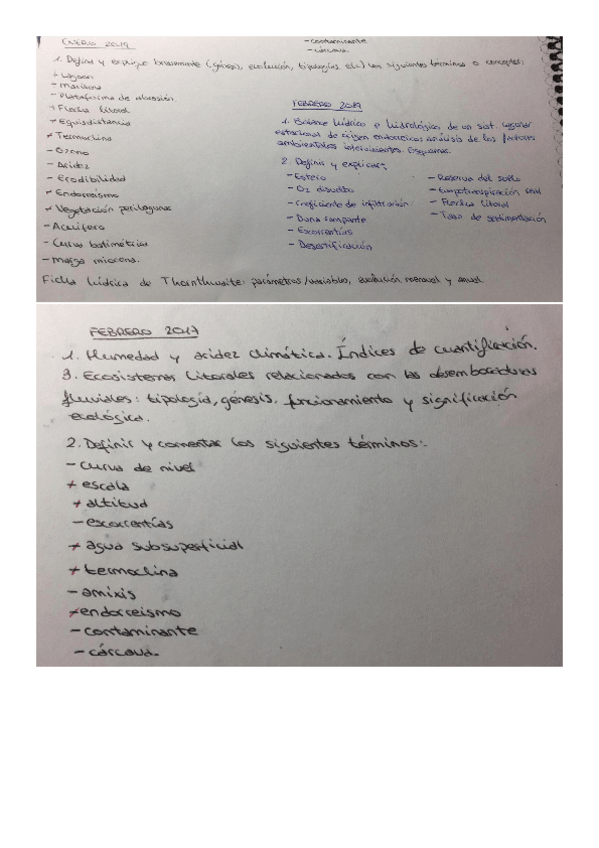 ENERO 2019
1. Define y explique brevemente (génesis, evolución, tipologías etc) los siguientes términos o conceptos:
- Lagoon
- Marisma
- Plataforma de abrasión
+ Flecha litoral
* Equidistancia
* Termoclina
- Ozono
- Acidez
- Erodibilidad
* Endorreismo
* Vegetación perilagunar
- Acuífero
- Curva batimétrica
- Marga
Ficha hídrica de Thornthwaite: parámetros/variables, evolución mensual y anual.
- contaminante
- cárcava.
FEBRERO 2019
1. Balance hídrico o hidrológico de un sist. lagunar estacional de origen endorreico: análisis de los factores
ambientales intervinientes. Esquemas.
2. Definir y explicar;
- Estero
- O2 disuelto
- Coeficiente de infiltración
- Duna rampante
- Escorrentías
- Desertificación
- Reserva del suelo
- Evapotranspiración real
- Flecha Litoral
- Tasa de sedimentación
FEBRERO 2017
1. Humedad y acidez climática. Índices de cuantificación.
3. Ecosistemas litorales relacionados con las desembocaduras
fluviales: tipología, génesis, funcionamiento y significación
ecológica.
2. Definir y comentar los siguientes términos:-
- curva de nivel
* escala
* altitud
- escorrentías
* agua subsuperficial
* termoclina
- amixis
* endorreismo
- contaminante
- cárcava.